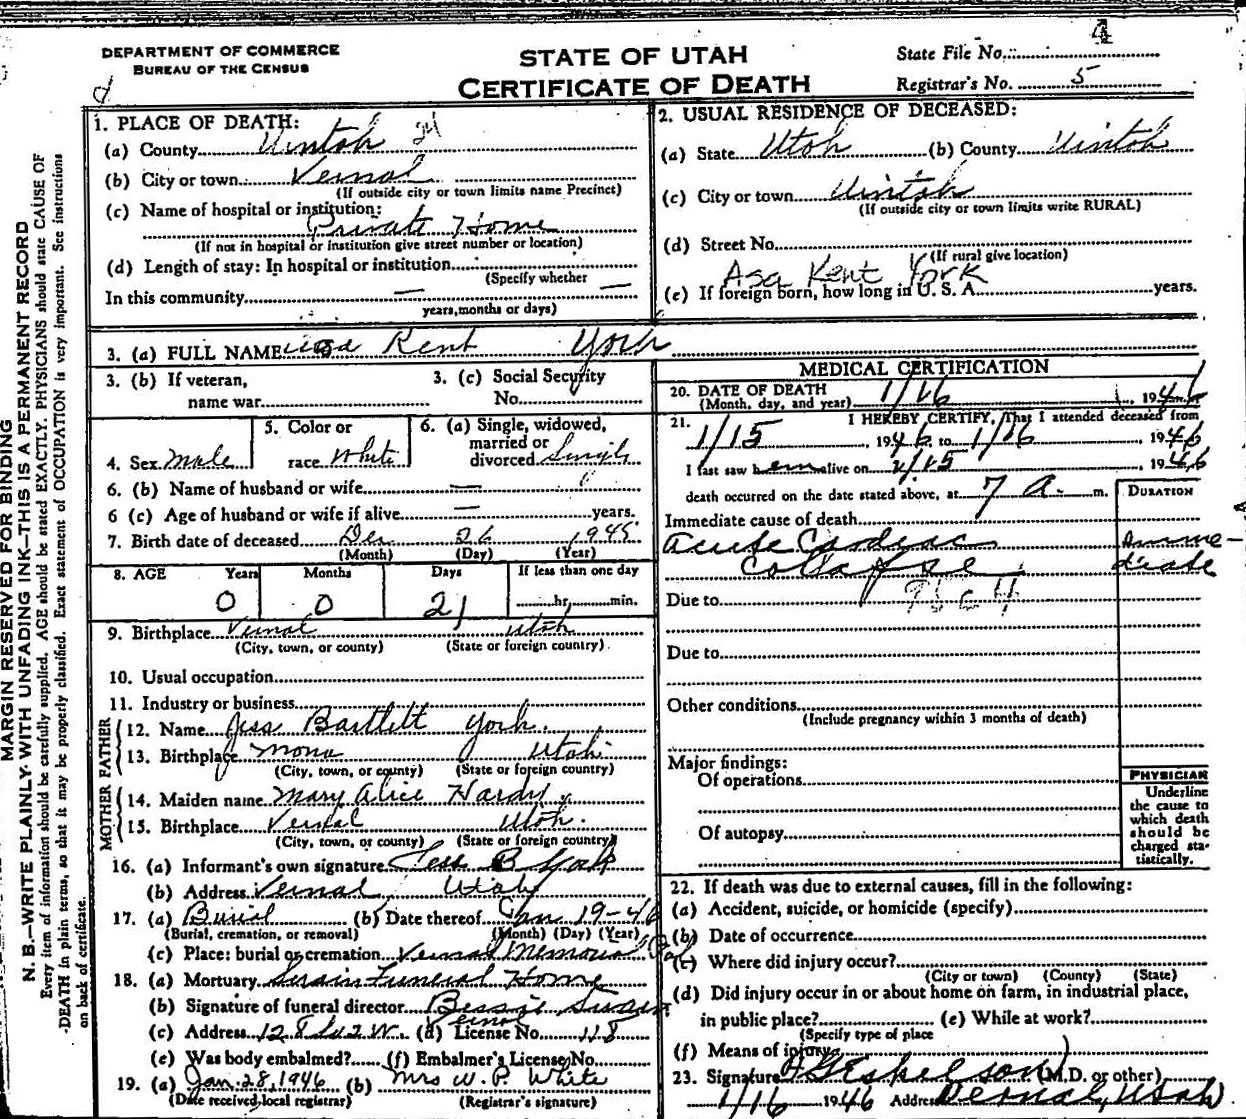 DEPARTMENT OF COMMERCE
BUREAU OF THE CENSUS
STATE OF UTAH
CERTIFICATE OF DEATH
State File No. 4
Registrar's No. 5
MARGIN RESERVED FOR BINDING
N. B.—WRITE PLAINLY WITH UNFADING INK—THIS IS A PERMANENT RECORD
Every item of information should be carefully supplied. AGE should be stated EXACTLY. PHYSICIANS should state CAUSE OF
DEATH in plain terms, so that it may be properly classified. Exact statement of OCCUPATION is very important. See instructions
on back of certificate.
1. PLACE OF DEATH:
(a) County Uintah
(b) City or town Vernal
(If outside city or town limits name Precinct)
(c) Name of hospital or institution:
Private Home
(If not in hospital or institution give street number or location)
(d) Length of stay: In hospital or institution
(Specify whether
In this community — —
years, months or days)
2. USUAL RESIDENCE OF DECEASED:
(a) State Utah (b) County Uintah
(c) City or town Uintah
(If outside city or town limits write RURAL)
(d) Street No.
(If rural give location)
Asa Kent York
(e) If foreign born, how long in U. S. A. years.
3. (a) FULL NAME Kent York
3. (b) If veteran,
name war
3. (c) Social Security
No.
4. Sex Male
5. Color or
race White
6. (a) Single, widowed,
married or
divorced Single
6. (b) Name of husband or wife —
6 (c) Age of husband or wife if alive — years.
7. Birth date of deceased Dec 26 1945
(Month) (Day) (Year)
8. AGE Years Months Days If less than one day
0 0 21 hr. min.
9. Birthplace Vernal Utah
(City, town, or county) (State or foreign country)
10. Usual occupation
11. Industry or business
FATHER
12. Name Jess Bartlett York.
13. Birthplace Mona Utah
(City, town, or county) (State or foreign country)
MOTHER
14. Maiden name Mary Alice Hardy
15. Birthplace Vernal Utah.
(City, town, or county) (State or foreign country)
16. (a) Informant's own signature Jess B York
(b) Address Vernal Utah
17. (a) Burial (b) Date thereof Jan 19-46
(Burial, cremation, or removal) (Month) (Day) (Year)
(c) Place: burial or cremation Vernal Memorial
18. (a) Mortuary Swain Funeral Home
(b) Signature of funeral director Bessie Swain
Vernal
(c) Address 128 So 2 W. (d) License No. 118
(e) Was body embalmed? (f) Embalmer's License No.
19. (a) Jan. 28, 1946 (b) Mrs W. P. White
(Date received local registrar) (Registrar's signature)
MEDICAL CERTIFICATION
20. DATE OF DEATH 1/16, 1946
(Month, day, and year)
21. I HEREBY CERTIFY, That I attended deceased from
1/15, 1946 to 1/16, 1946
I last saw him alive on 1/15, 1946
death occurred on the date stated above, at 7 a. m.
DURATION
Immediate cause of death
Acute Cardiac Imme-
Collapse diate
Due to
Due to
Other conditions
(Include pregnancy within 3 months of death)
Major findings:
Of operations
Of autopsy
PHYSICIAN
Underline
the cause to
which death
should be
charged sta-
tistically.
22. If death was due to external causes, fill in the following:
(a) Accident, suicide, or homicide (specify)
(b) Date of occurrence
(c) Where did injury occur?
(City or town) (County) (State)
(d) Did injury occur in or about home on farm, in industrial place,
in public place? (e) While at work?
(Specify type of place
(f) Means of injury
23. Signature Eskelson (M.D. or other)
1/16 1946 Address Vernal, Utah